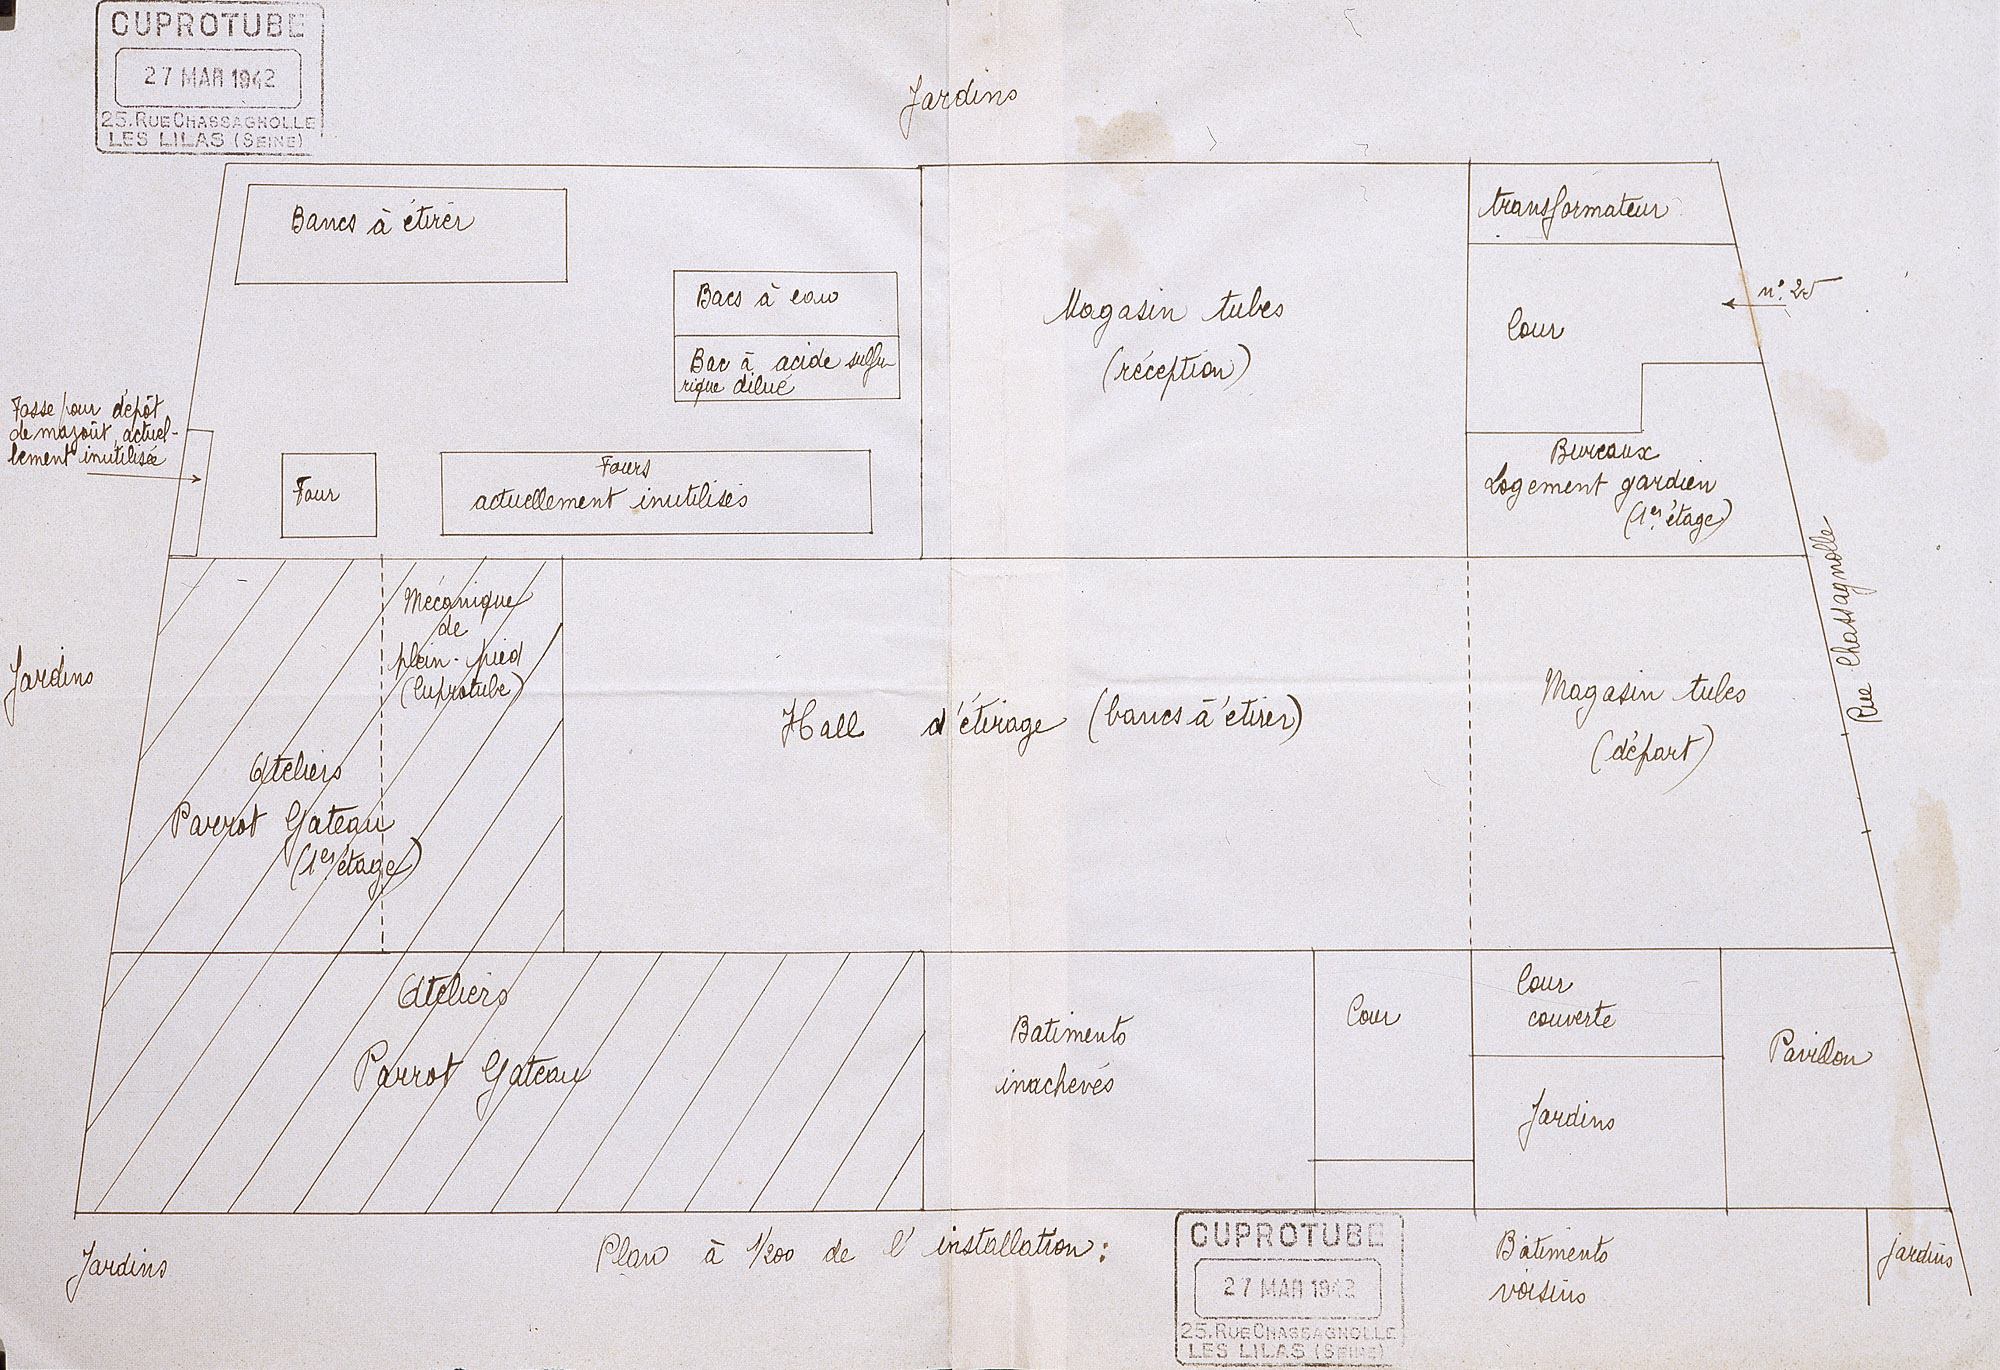 CUPROTUBE
27 MAR 1942
25. RUE CHASSAGNOLLE
LES LILAS (SEINE)
Jardins
Bancs à étirer
Bacs à eau
Bac à acide sulfu
rique dilué
Magasin tubes
(réception)
transformateur
Cour
n° 25
Bureaux
Logement gardien
(1er étage)
Fosse pour dépôt
de mazoût actuel-
lement inutilisée
Four
Fours
actuellement inutilisés
Rue Chassagnolle
Jardins
Mécanique
de
plein-pied
(Cuprotube)
Ateliers
Parrot Gateau
(1er étage)
Hall d'étirage (bancs à étirer)
Magasin tubes
(départ)
Ateliers
Parrot Gateau
Batiments
inachevés
Cour
Cour
couverte
Jardins
Pavillon
Jardins
Plan à 1/200 de l'installation:
CUPROTUBE
27 MAR 1942
25. RUE CHASSAGNOLLE
LES LILAS (SEINE)
Bâtiments
voisins
jardins